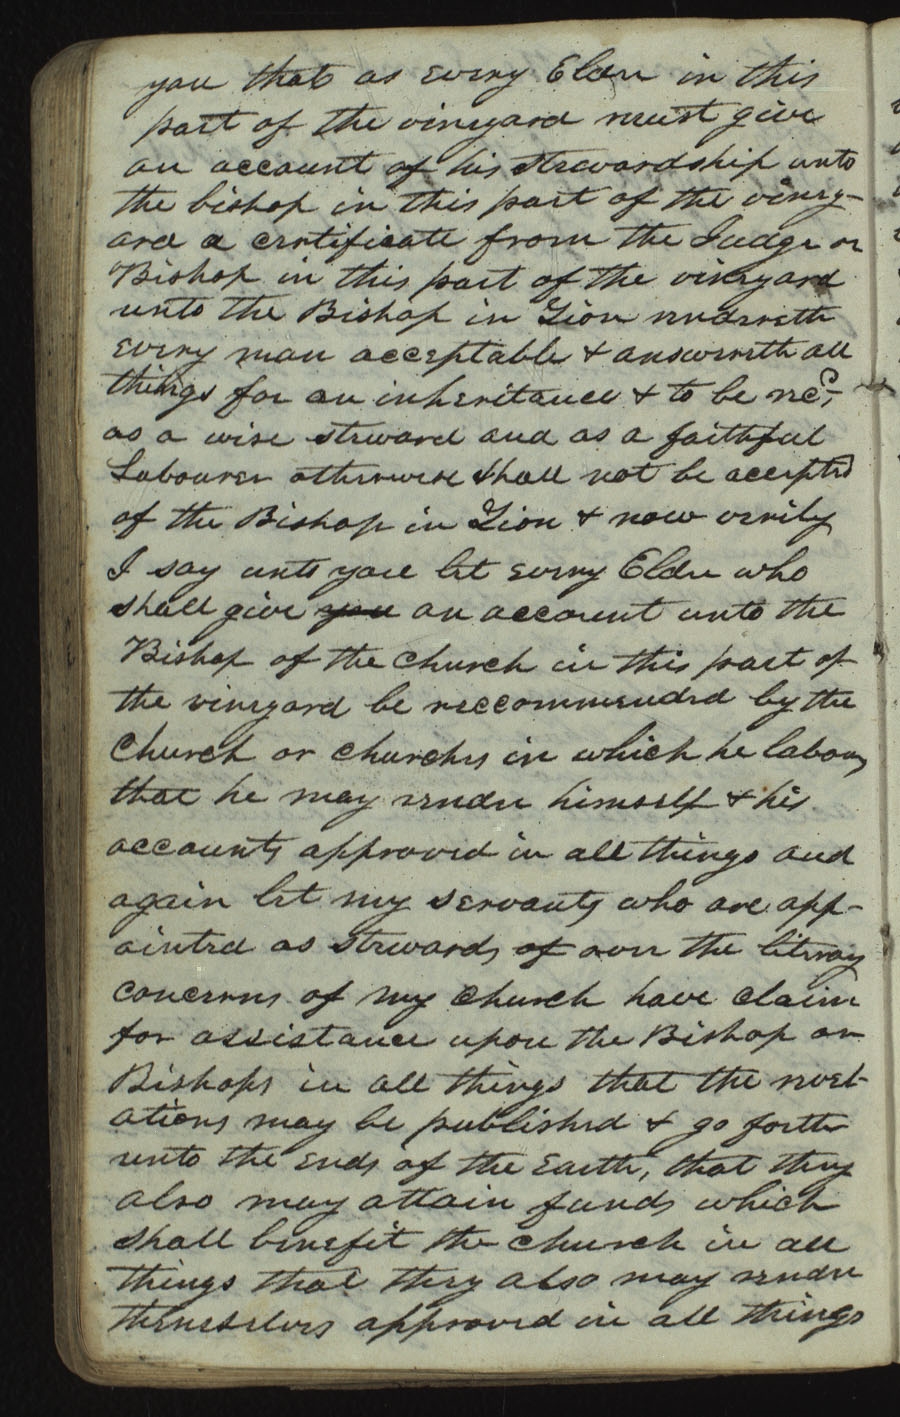 you that as every Elder in this
part of the vineyard must give
an account of his stewardship unto
the bishop in this part of the viney-
ard a certificate from the Judge or
Bishop in this part of the vineyard
unto the Bishop in Zion rendereth
every man acceptable & answereth all
things for an inheritance & to be recd.
as a wise steward and as a faithful
Labourer otherwise shall not be accepted
of the Bishop in Zion & now verily
I say unto you let every Elder who
shall give you an account unto the
Bishop of the church in this part of
the vineyard be reccommended by the
Church or churches in which he labours
that he may render himself & his
accounts approved in all things and
again let my servants who are app-
ointed as stewards of over the literary
concerns of my church have claim
for assistance upon the Bishop or
Bishops in all things that the revel-
ations may be published & go forth
unto the ends of the Earth, that they
also may attain funds which
shall benefit the church in all
things that they also may render
themselves approved in all things